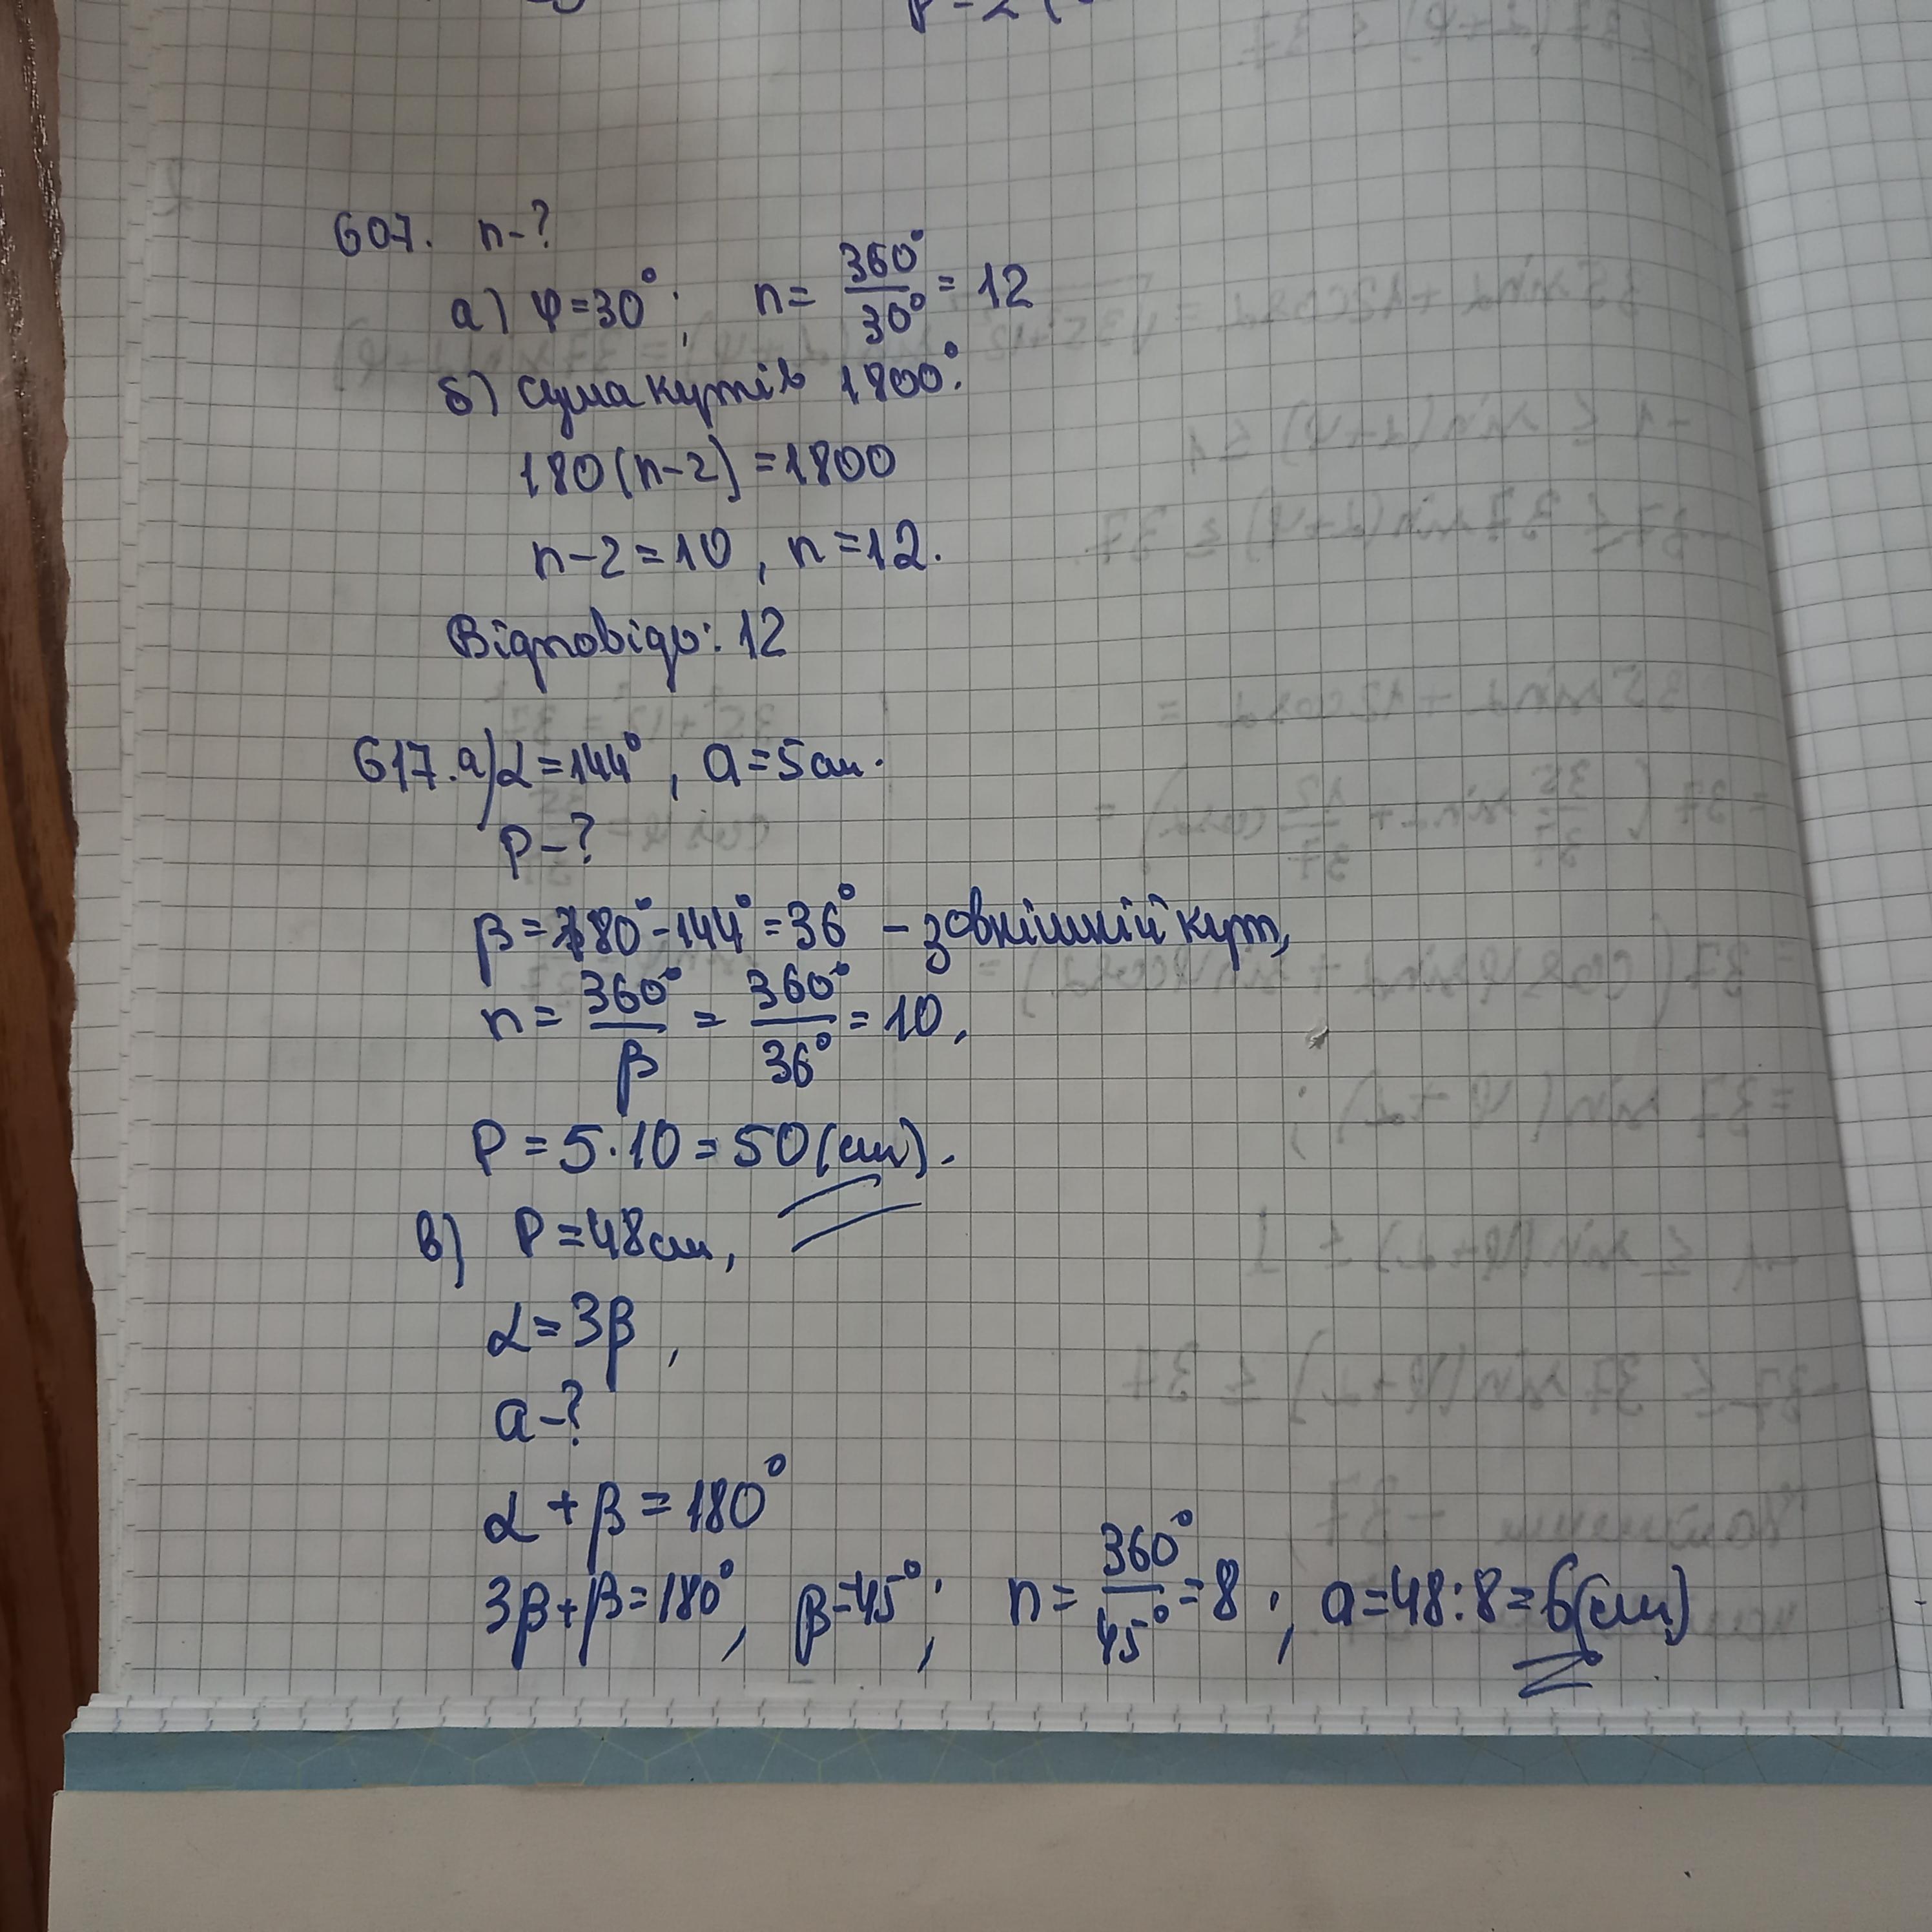 607. n-?
a) φ=30°; n= 360°/30° = 12
б) сума кутів 1800°.
180(n-2)=1800
n-2=10, n=12.
Відповідь: 12
617.а) α=144°, a=5см.
P-?
β=180°-144°=36° - зовнішній кут,
n= 360°/β = 360°/36° = 10,
P=5·10=50(см).
в) P=48см,
α=3β,
a-?
α+β=180°
3β+β=180°, β=45°; n= 360°/45° =8; a=48:8=6(см)